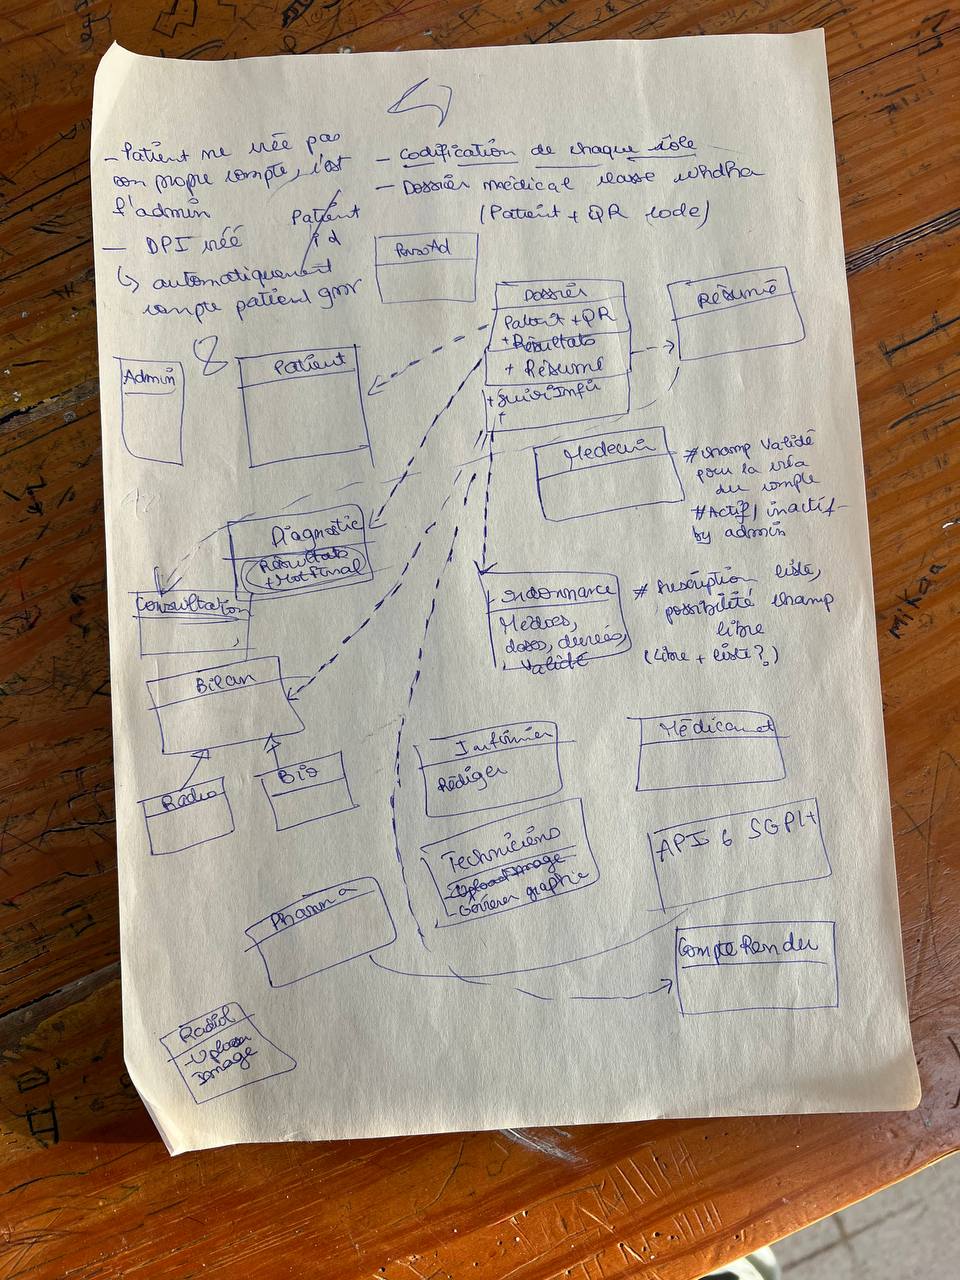 - Patient ne créé pas
son propre compte, c'est
l'admin
- DPI créé
↳ automatiquement
compte patient
Patient
id
- Codification de chaque rôle
- Dossier médical classe whdha
(Patient + QR code)
PersoAd
Dossier
Patient + QR
+ Résultats
+ Résumé
+ Suivi Infi
+
Résumé
Admin
8
Patient
Medecin
# champ validé
pour la créa
du compte
# Actif, inactif
by admin
Diagnostic
Résultats
+ Mot Final
Consultation
Ordonnance
Médocs,
doses, durées,
Validé
# Prescription liste,
possibilité champ
libre
(libre + liste?)
Mikaa
Bilan
Radio
Bio
Infirmier
Rédiger
Médicamet
Techniciens
- Upload Image
- Génerer graphie
API 6 SGPH
Pharma
Compte Rendu
Radiol
- Upload
Image